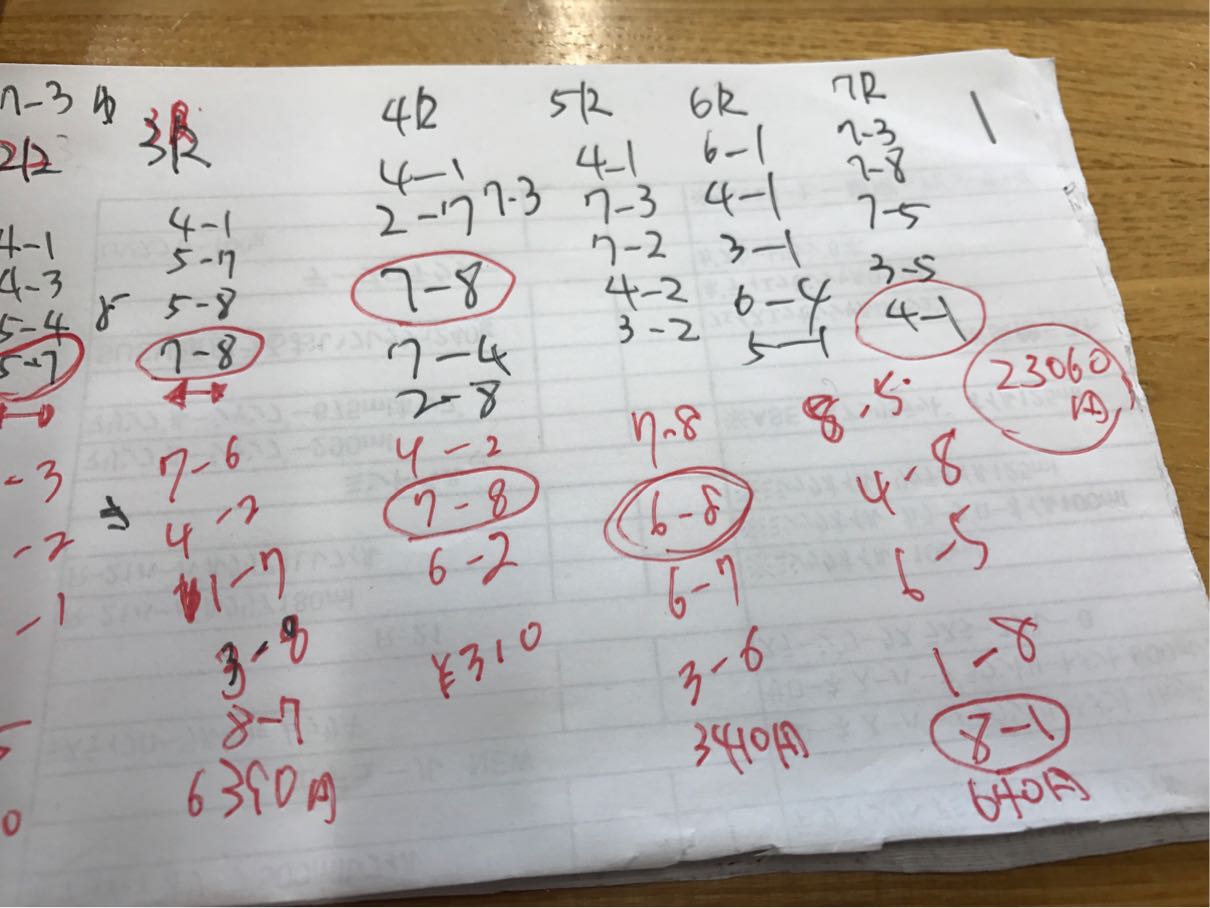 7-3
2R
4-1
4-3
5-4
5-7
-3
-2
-1
0
3R
4-1
5-7
5-8
7-8
7-6
4-2
1-7
3-8
8-7
6390円
4R
4-1
2-7 7-3
7-8
7-4
2-8
4-2
7-8
6-2
¥310
5R
4-1
7-3
7-2
4-2
3-2
6R
6-1
4-1
3-1
6-4
5-1
7-8
6-8
6-7
3-6
3410円
7R
7-3
7-8
7-5
3-5
4-1
23060
円
8-5
4-8
6-5
1-8
8-1
640円